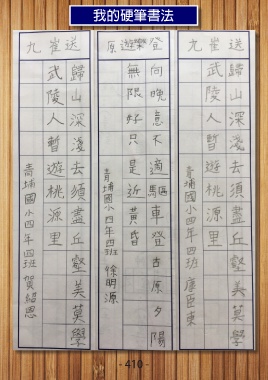 我的硬筆書法
送崔九
歸山深淺去須盡丘壑美莫學
武陵人暫遊桃源里
青埔國小四年四班
登樂遊原
向晚意不適驅車登古原夕陽
無限好只是近黃昏
青埔國小四年四班 徐明源
送崔九
歸山深淺去須盡丘壑美莫學
武陵人暫遊桃源里
青埔國小四年四班 賀紹恩
- 410 -